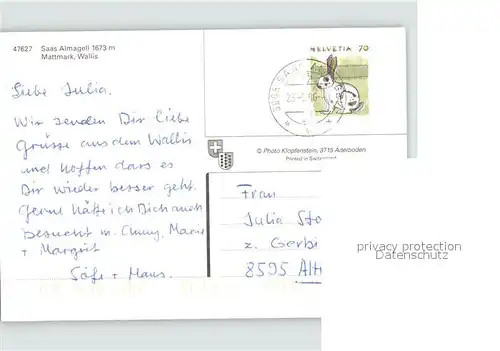 47627 Saas Almagell 1673 m
Mattmark, Wallis
HELVETIA 70
Liebe Julia.
Wir senden Dir liebe
Grüsse aus dem Wallis
und hoffen dass es
Dir wieder besser geht.
Gerne hätte ich Dich auch
besucht m. Marie
+ Margrit
+ Hans.
© Photo Klopfenstein, 3715 Adelboden
Printed in Switzerland
Frau
Julia Sto
z. Gerbi
8595 Alt
privacy protection
Datenschutz